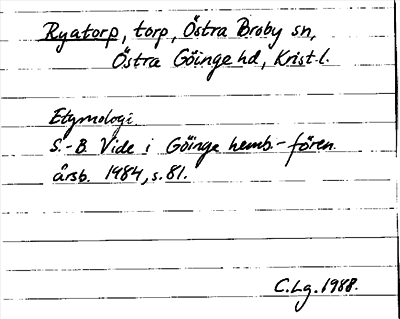 Ryatorp, torp, Östra Broby sn,
Östra Göinge hd, Krist.l.
Etymologi
S.-B. Vide i Göinge hemb.-fören.
årsb. 1984, s. 81.
C.Lg. 1988.